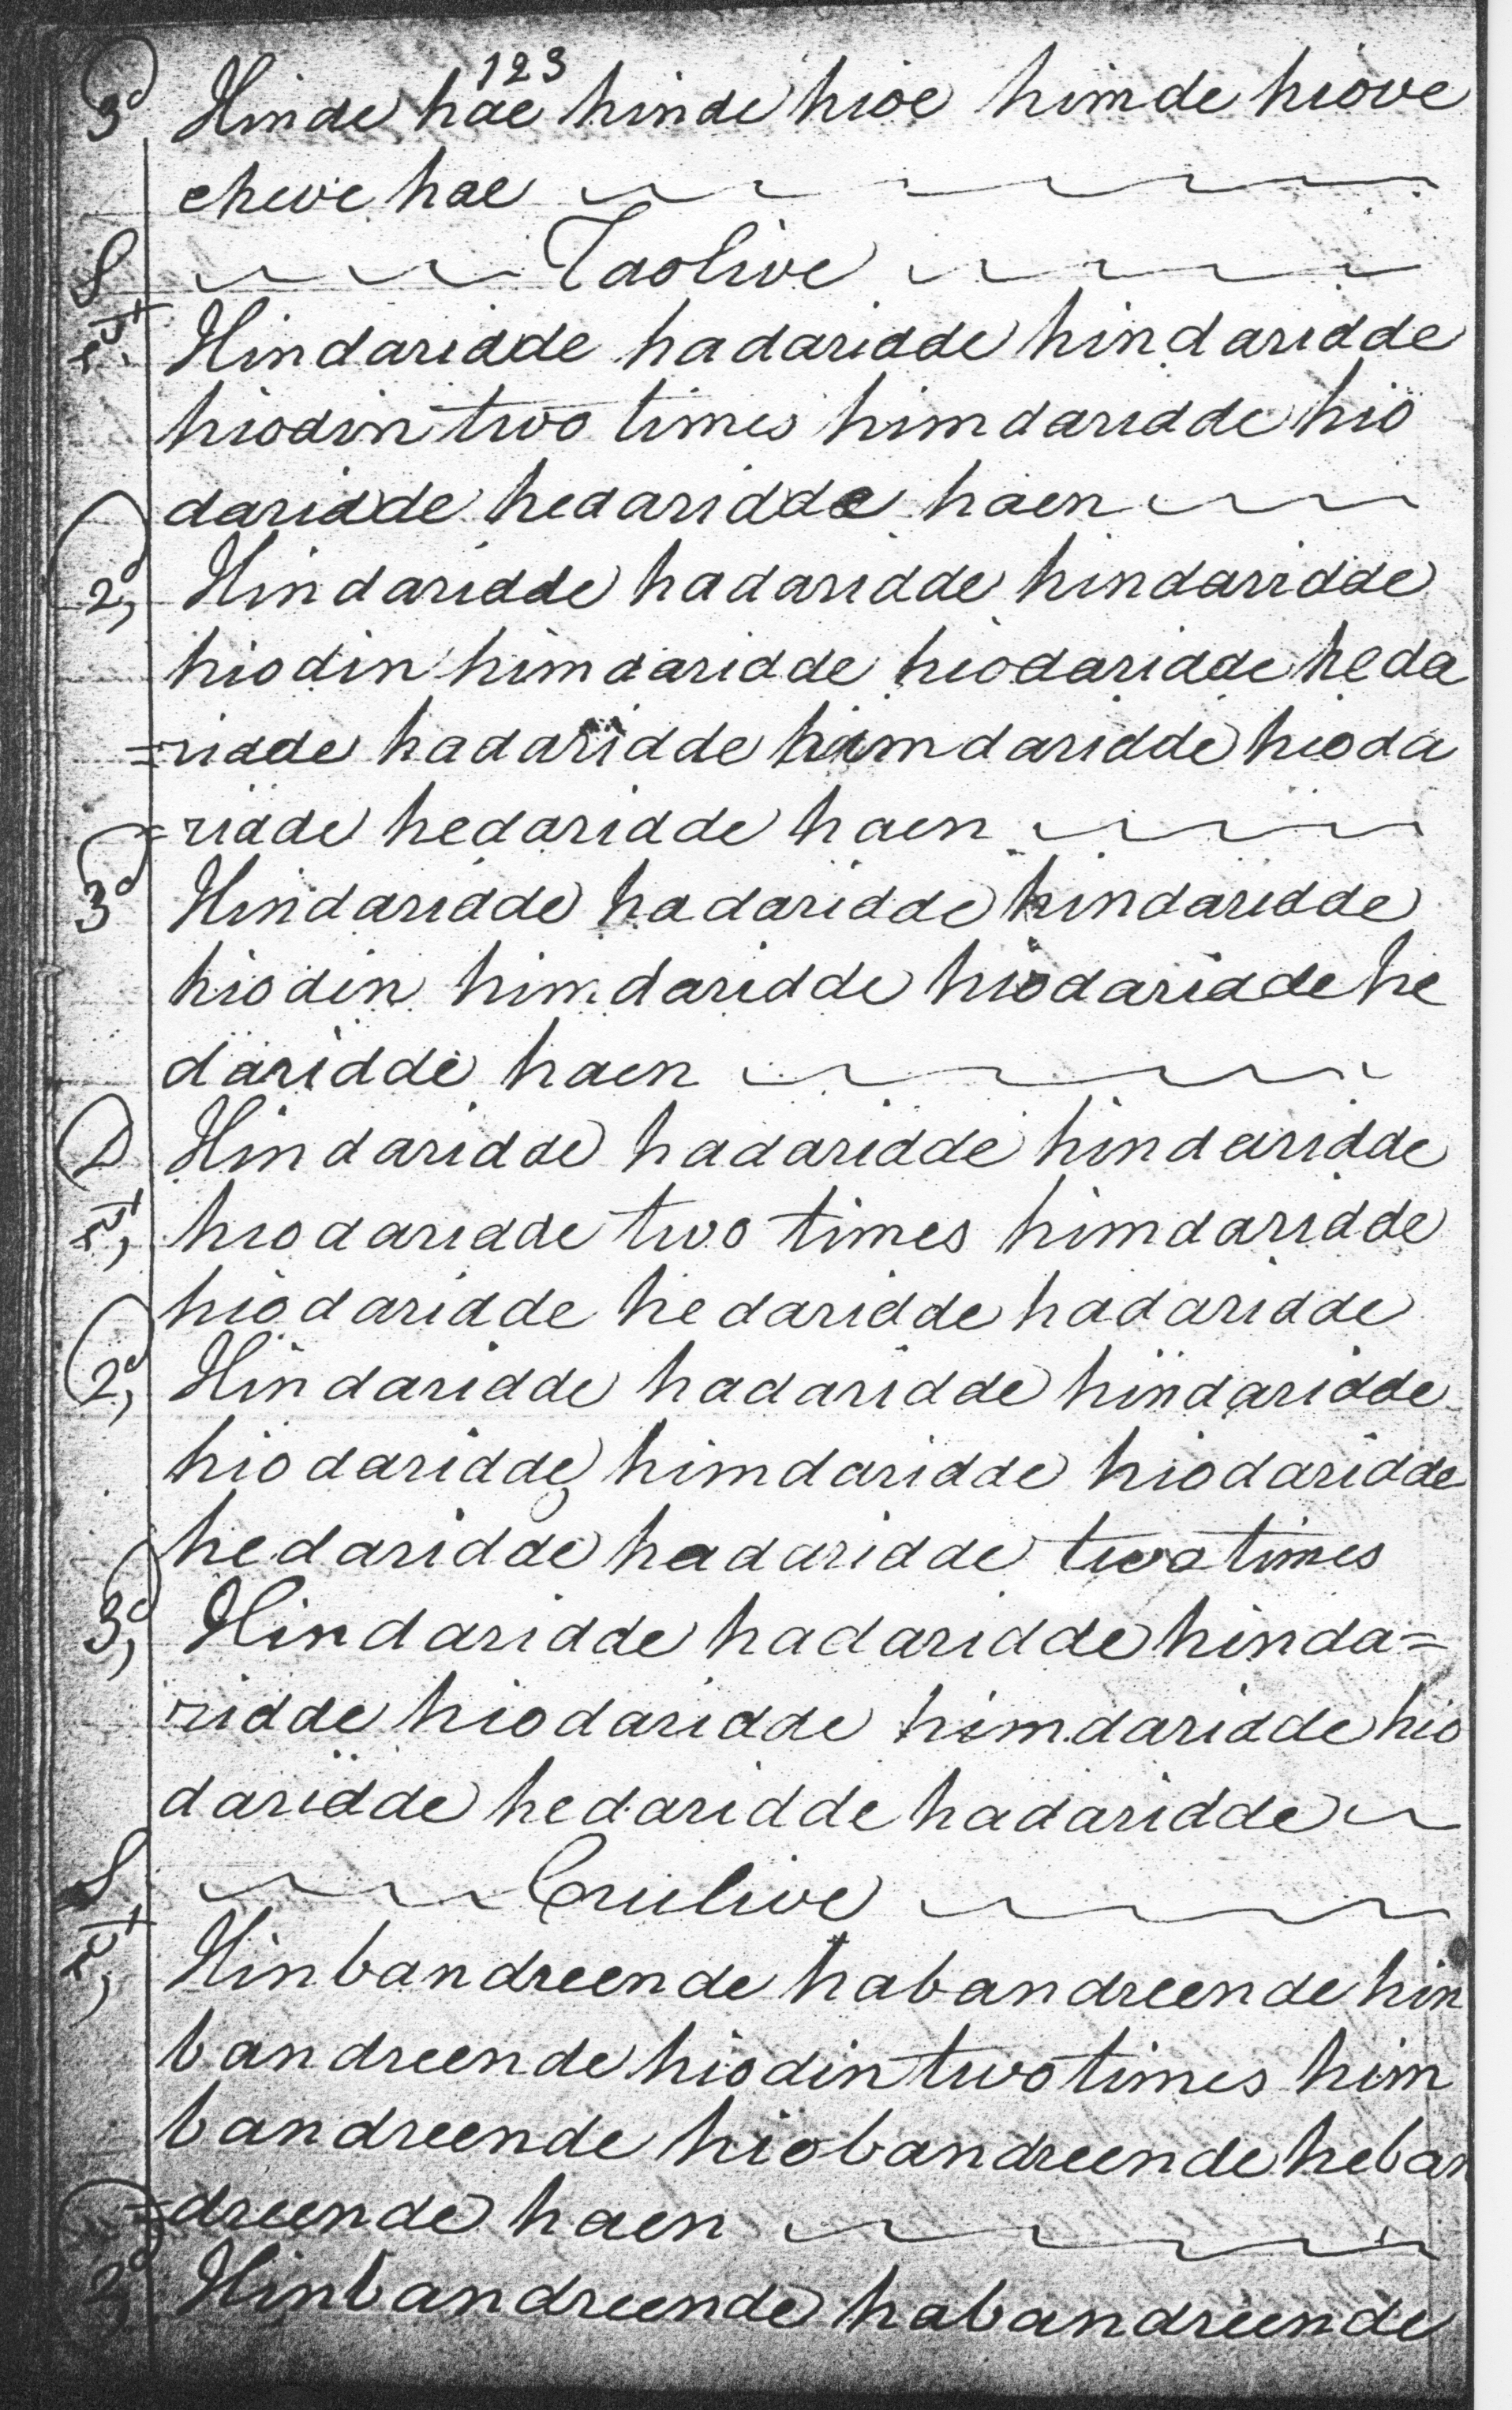 123
3d Hinde hae hinde hioe himde hiove
cheve hae
S Taolive
1st Hindaridde hadaridde hindaridde
hiodin two times himdaridde hio
daridde hedaridde haen
2d, Hindaridde hadaridde hindaridde
hiodin himdaridde hiodaridde heda
=ridde hadaridde himdaridde hioda
=ridde hedaridde haen
3d Hindaridde hadaridde hindaridde
hiodin himdaridde hiodaridde he
daridde haen
D Hindaridde hadaridde hindaridde
1st, hiodaridde two times himdaridde
hiodaridde hedaridde hadaridde
2d, Hindaridde hadaridde hindaridde
hiodaridde himdaridde hiodaridde
hedaridde hadaridde two times
3d, Hindaridde hadaridde hinda=
ridde hiodaridde himdaridde hio
daridde hedaridde hadaridde
S Crulive
1st, Hinbandreende habandreende hin
bandreende hiodin two times him
bandreende hiobandreende heban
=dreende haen
Hinbandreende habandreende